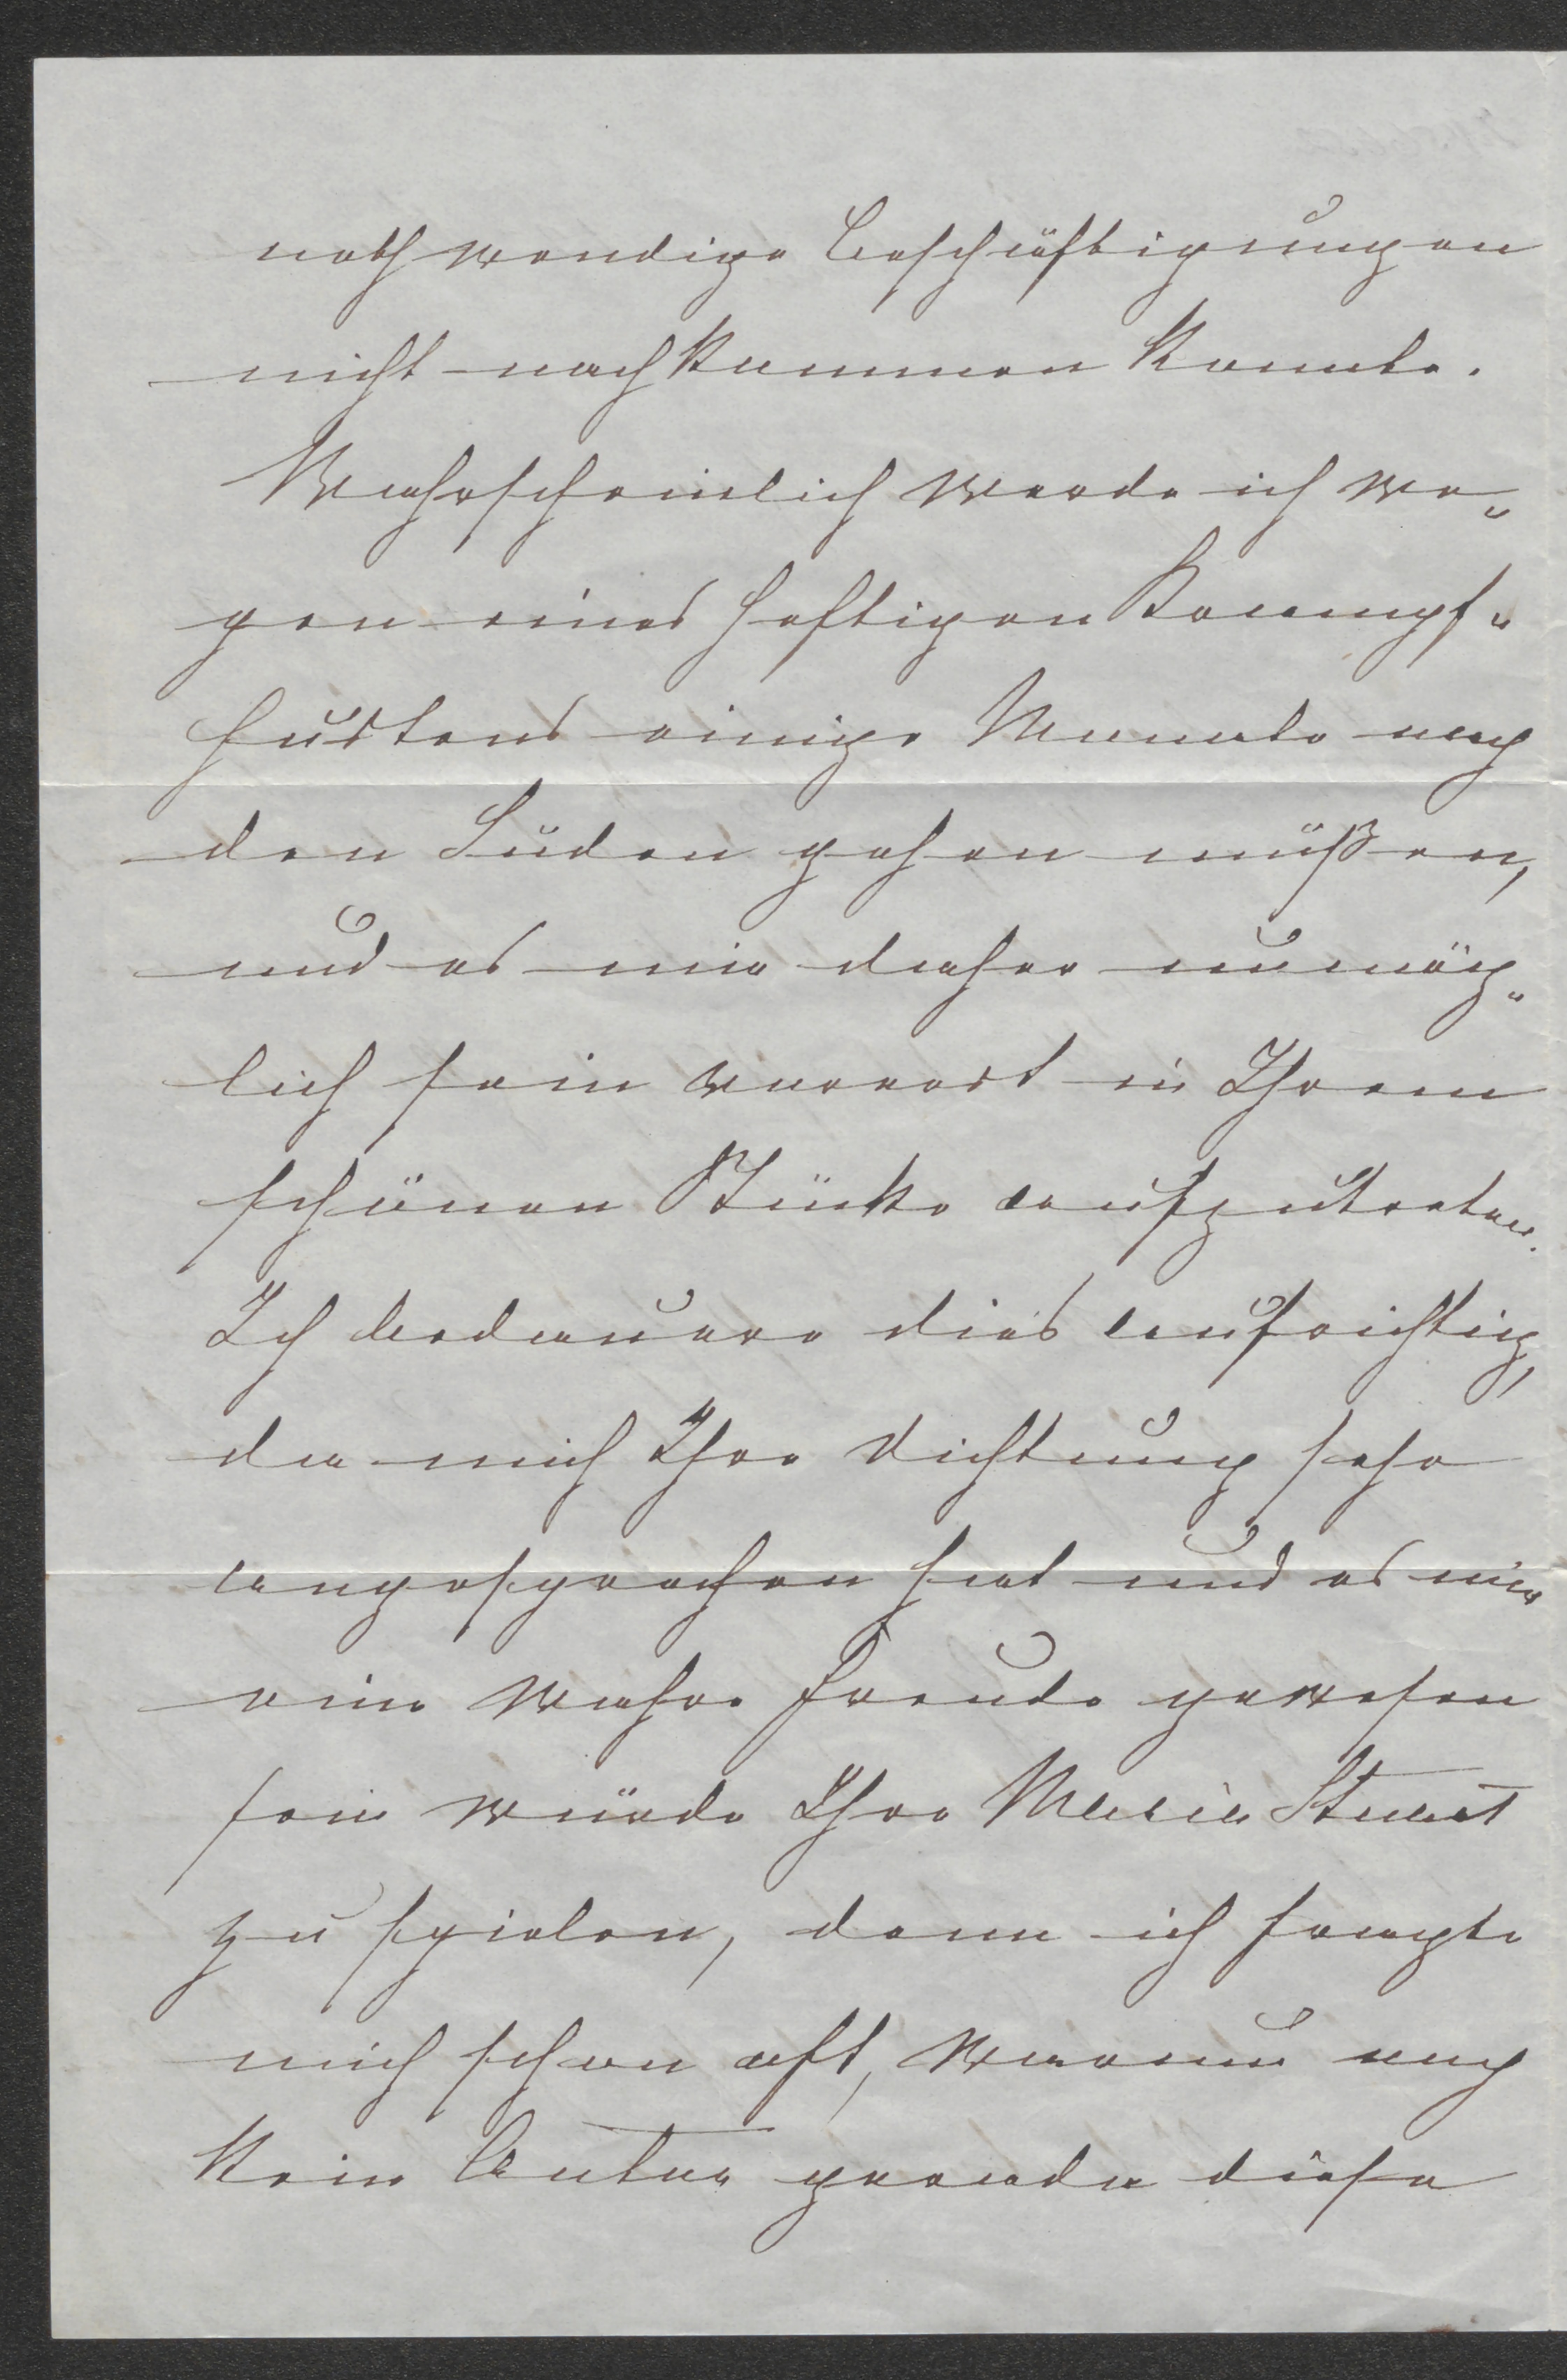 nothwendige Beschäftigungen
nicht nachkommen konnte.
Wahrscheinlich werde ich we„
gen eines heftigen Krampf„
hustens einige Monate nach
den Süden gehen müßen,
und es mir daher unmög„
lich sein vorerst in Ihrem
schönen Stücke aufzutreten.
Ich bedauere dies aufrichtig,
da mich Ihre Dichtung sehr
angesprochen hat und es mir
eine wahre Freude gewesen
sein würde Ihre Maria Stuart
zu spielen, denn ich fragte
mich schon oft, warum noch
kein Autor gerade diese